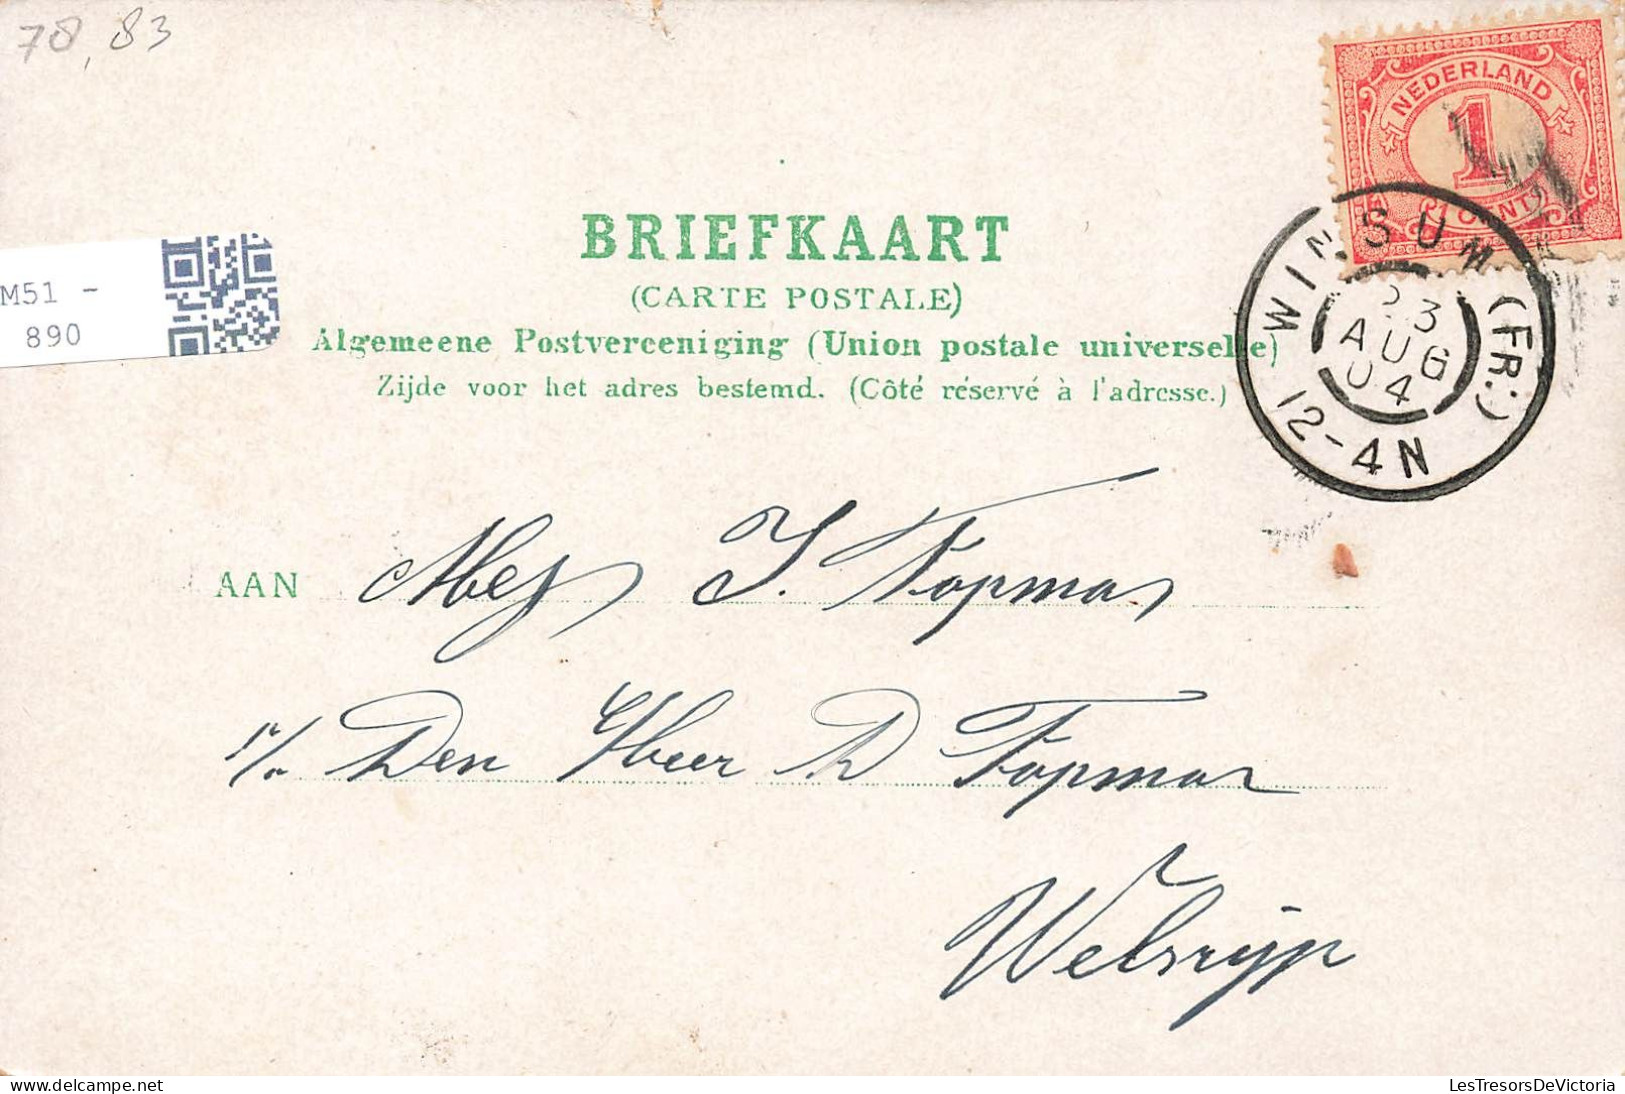 78,83
NEDERLAND
1
CENT
M51 -
890
BRIEFKAART
(CARTE POSTALE)
Algemeene Postvereeniging (Union postale universelle)
Zijde voor het adres bestemd. (Côté réservé à l'adresse.)
WINSUM (FR:)
23
AUG
04
12-4N
AAN Mej J. Fopma
p/a Den Heer D Fopma
Welsrijp
www.delcampe.net
LesTresorsDeVictoria